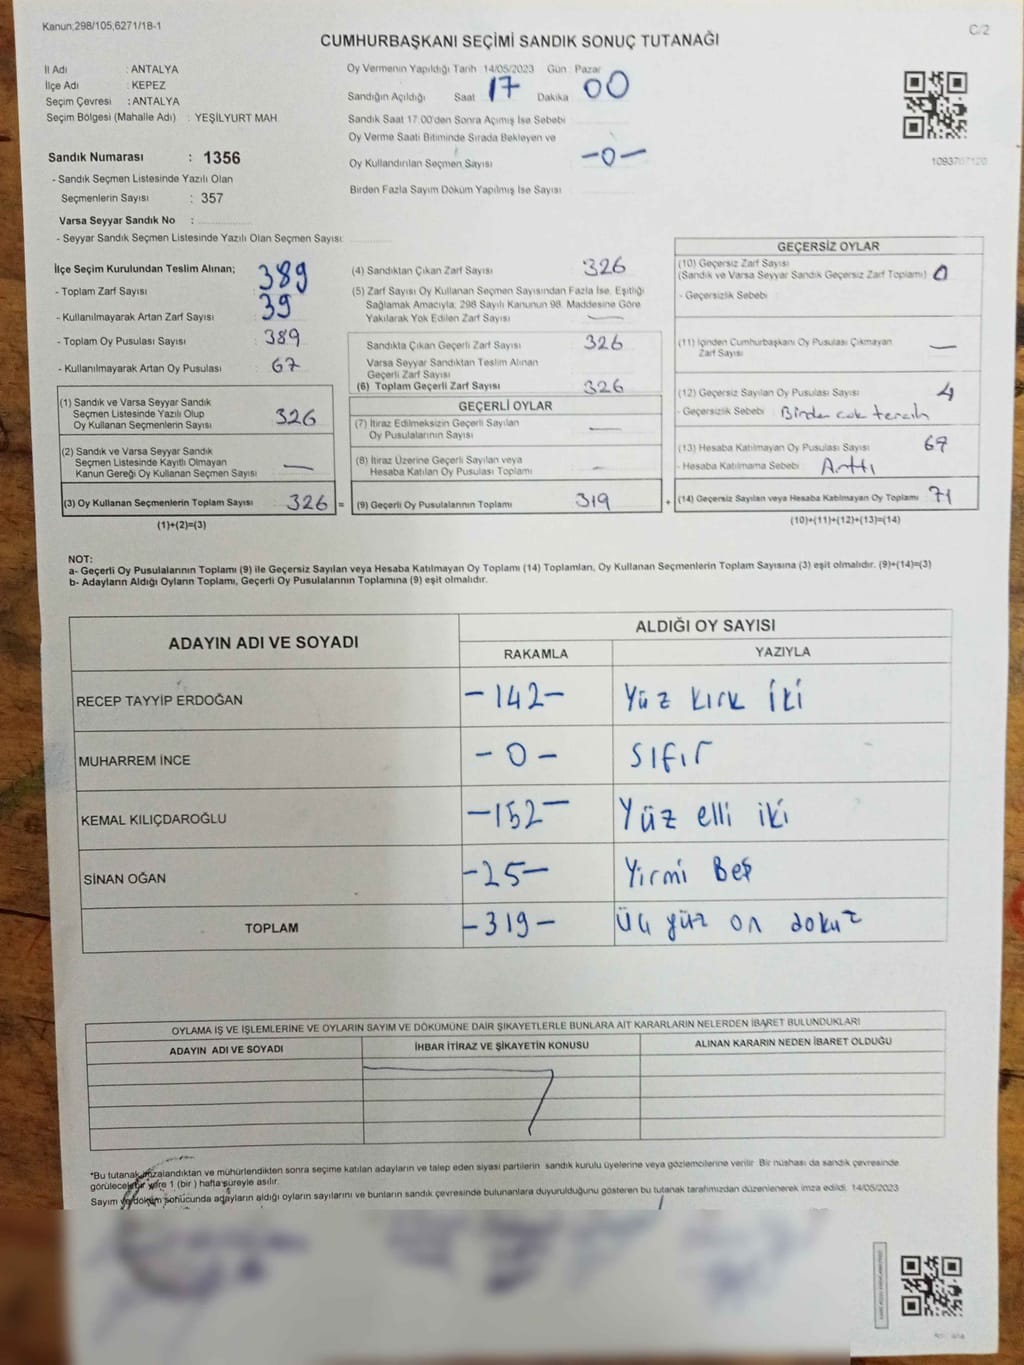 Kanun;298/105,6271/18-1
C/2
CUMHURBAŞKANI SEÇİMİ SANDIK SONUÇ TUTANAĞI
İl Adı : ANTALYA
İlçe Adı : KEPEZ
Seçim Çevresi : ANTALYA
Seçim Bölgesi (Mahalle Adı) : YEŞİLYURT MAH
Sandık Numarası : 1356
- Sandık Seçmen Listesinde Yazılı Olan
Seçmenlerin Sayısı : 357
Varsa Seyyar Sandık No :
- Seyyar Sandık Seçmen Listesinde Yazılı Olan Seçmen Sayısı:
Oy Vermenin Yapıldığı Tarih 14/05/2023 Gün : Pazar
Sandığın Açıldığı Saat 17 Dakika 00
Sandık Saat 17:00'den Sonra Açımış İse Sebebi
Oy Verme Saati Bitiminde Sırada Bekleyen ve
Oy Kullandırılan Seçmen Sayısı -0-
Birden Fazla Sayım Döküm Yapılmış İse Sayısı
İlçe Seçim Kurulundan Teslim Alınan;
- Toplam Zarf Sayısı 389
- Kullanılmayarak Artan Zarf Sayısı 39
- Toplam Oy Pusulası Sayısı 389
- Kullanılmayarak Artan Oy Pusulası 67
(1) Sandık ve Varsa Seyyar Sandık
Seçmen Listesinde Yazılı Olup
Oy Kullanan Seçmenlerin Sayısı 326
(2) Sandık ve Varsa Seyyar Sandık
Seçmen Listesinde Kayıtlı Olmayan
Kanun Gereği Oy Kullanan Seçmen Sayısı —
(3) Oy Kullanan Seçmenlerin Toplam Sayısı 326 =
(1)+(2)=(3)
(4) Sandıktan Çıkan Zarf Sayısı 326
(5) Zarf Sayısı Oy Kullanan Seçmen Sayısından Fazla İse, Eşitliği
Sağlamak Amacıyla; 298 Sayılı Kanunun 98. Maddesine Göre
Yakılarak Yok Edilen Zarf Sayısı —
Sandıkta Çıkan Geçerli Zarf Sayısı 326
Varsa Seyyar Sandıktan Teslim Alınan
Geçerli Zarf Sayısı
(6) Toplam Geçerli Zarf Sayısı 326
GEÇERLİ OYLAR
(7) İtiraz Edilmeksizin Geçerli Sayılan
Oy Pusulalarının Sayısı —
(8) İtiraz Üzerine Geçerli Sayılan veya
Hesaba Katılan Oy Pusulası Toplamı —
(9) Geçerli Oy Pusulalarının Toplamı 319 +
GEÇERSİZ OYLAR
(10) Geçersiz Zarf Sayısı
(Sandık ve Varsa Seyyar Sandık Geçersiz Zarf Toplamı) 0
- Geçersizlik Sebebi
(11) İçinden Cumhurbaşkanı Oy Pusulası Çıkmayan
Zarf Sayısı —
(12) Geçersiz Sayılan Oy Pusulası Sayısı 4
- Geçersizlik Sebebi : Birden cok tercih
(13) Hesaba Katılmayan Oy Pusulası Sayısı 67
- Hesaba Katılmama Sebebi Arttı
(14) Geçersiz Sayılan veya Hesaba Katılmayan Oy Toplamı 71
(10)+(11)+(12)+(13)=(14)
NOT:
a- Geçerli Oy Pusulalarının Toplamı (9) ile Geçersiz Sayılan veya Hesaba Katılmayan Oy Toplamı (14) Toplamları, Oy Kullanan Seçmenlerin Toplam Sayısına (3) eşit olmalıdır. (9)+(14)=(3)
b- Adayların Aldığı Oyların Toplamı, Geçerli Oy Pusulalarının Toplamına (9) eşit olmalıdır.
ADAYIN ADI VE SOYADI
ALDIĞI OY SAYISI
RAKAMLA YAZIYLA
RECEP TAYYİP ERDOĞAN -142- Yüz kırk iki
MUHARREM İNCE -0- sıfır
KEMAL KILIÇDAROĞLU -152- Yüz elli iki
SİNAN OĞAN -25- Yirmi Beş
TOPLAM -319- Üç yüz on dokuz
OYLAMA İŞ VE İŞLEMLERİNE VE OYLARIN SAYIM VE DÖKÜMÜNE DAİR ŞİKAYETLERLE BUNLARA AİT KARARLARIN NELERDEN İBARET BULUNDUKLARI
ADAYIN ADI VE SOYADI İHBAR İTİRAZ VE ŞİKAYETİN KONUSU ALINAN KARARIN NEDEN İBARET OLDUĞU
*Bu tutanak imzalandıktan ve mühürlendikten sonra seçime katılan adayların ve talep eden siyasi partilerin sandık kurulu üyelerine veya gözlemcilerine verilir. Bir nüshası da sandık çevresinde
görülecek bir yere 1 (bir ) hafta süreyle asılır.
Sayım ve döküm sonucunda adayların aldığı oyların sayılarını ve bunların sandık çevresinde bulunanlara duyurulduğunu gösteren bu tutanak tarafımızdan düzenlenerek imza edildi. 14/05/2023